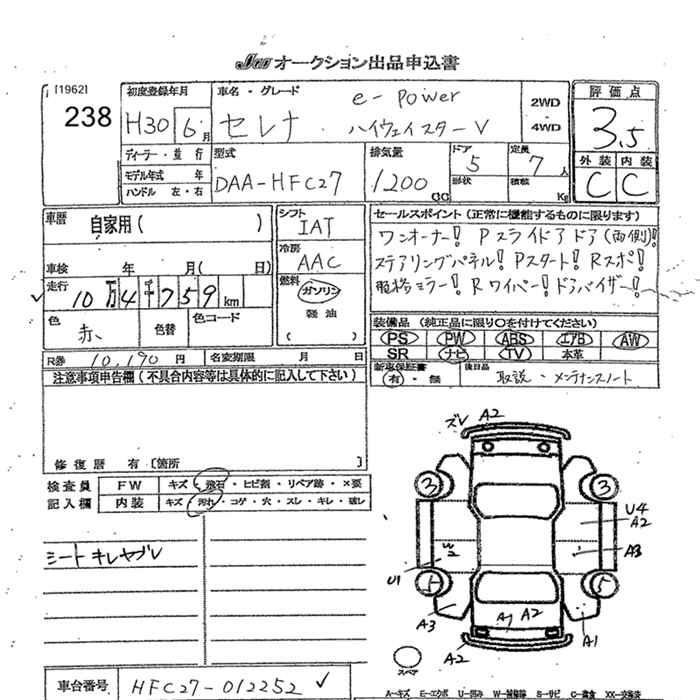 JAA オークション出品申込書
[1962]
238
初度登録年月
H30 6月
車名・グレード
e-power
セレナ ハイウェイスターV
2WD
4WD
評価点
3.5
外装 内装
C C
ディーラー・並行
モデル年式 年
ハンドル 左・右
型式
DAA-HFC27
排気量
1200cc
ドア
5
形状
定員
7人
積載
Kg
車歴
自家用( )
車検 年 月( 日)
走行
10万4千759km
色
赤
色替
色コード
シフト
IAT
冷房
AAC
燃料
ガソリン
軽油
( )
セールスポイント(正常に機能するものに限ります)
ワンオーナー! Pスライドドア(両側)!
ステアリングパネル! Pスタート! Rスポ!
電格ミラー! Rワイパー! ドアバイザー!
装備品(純正品に限り〇を付けてください)
PS PW ABS エアB AW
SR ナビ TV 本革
新車保証書
有・無
後日品
取説・メンテナンスノート
R券 10,190円
名変期限 月 日
注意事項申告欄(不具合内容等は具体的に記入して下さい)
修復歴 有[箇所 ]
検査員
記入欄
FW キズ・飛石・ヒビ割・リペア跡・×要
内装 キズ・汚れ・コゲ・穴・スレ・キレ・破レ
シートキレヤブレ
ズV A2
3 3
U4
A2
A3
U1
5 5
A3
A1 A2
A1
A2
スペア
車台番号 HFC27-012252
A-キズ E-エクボ U-凹み W-補修跡 S-サビ C-腐食 XX-交換済